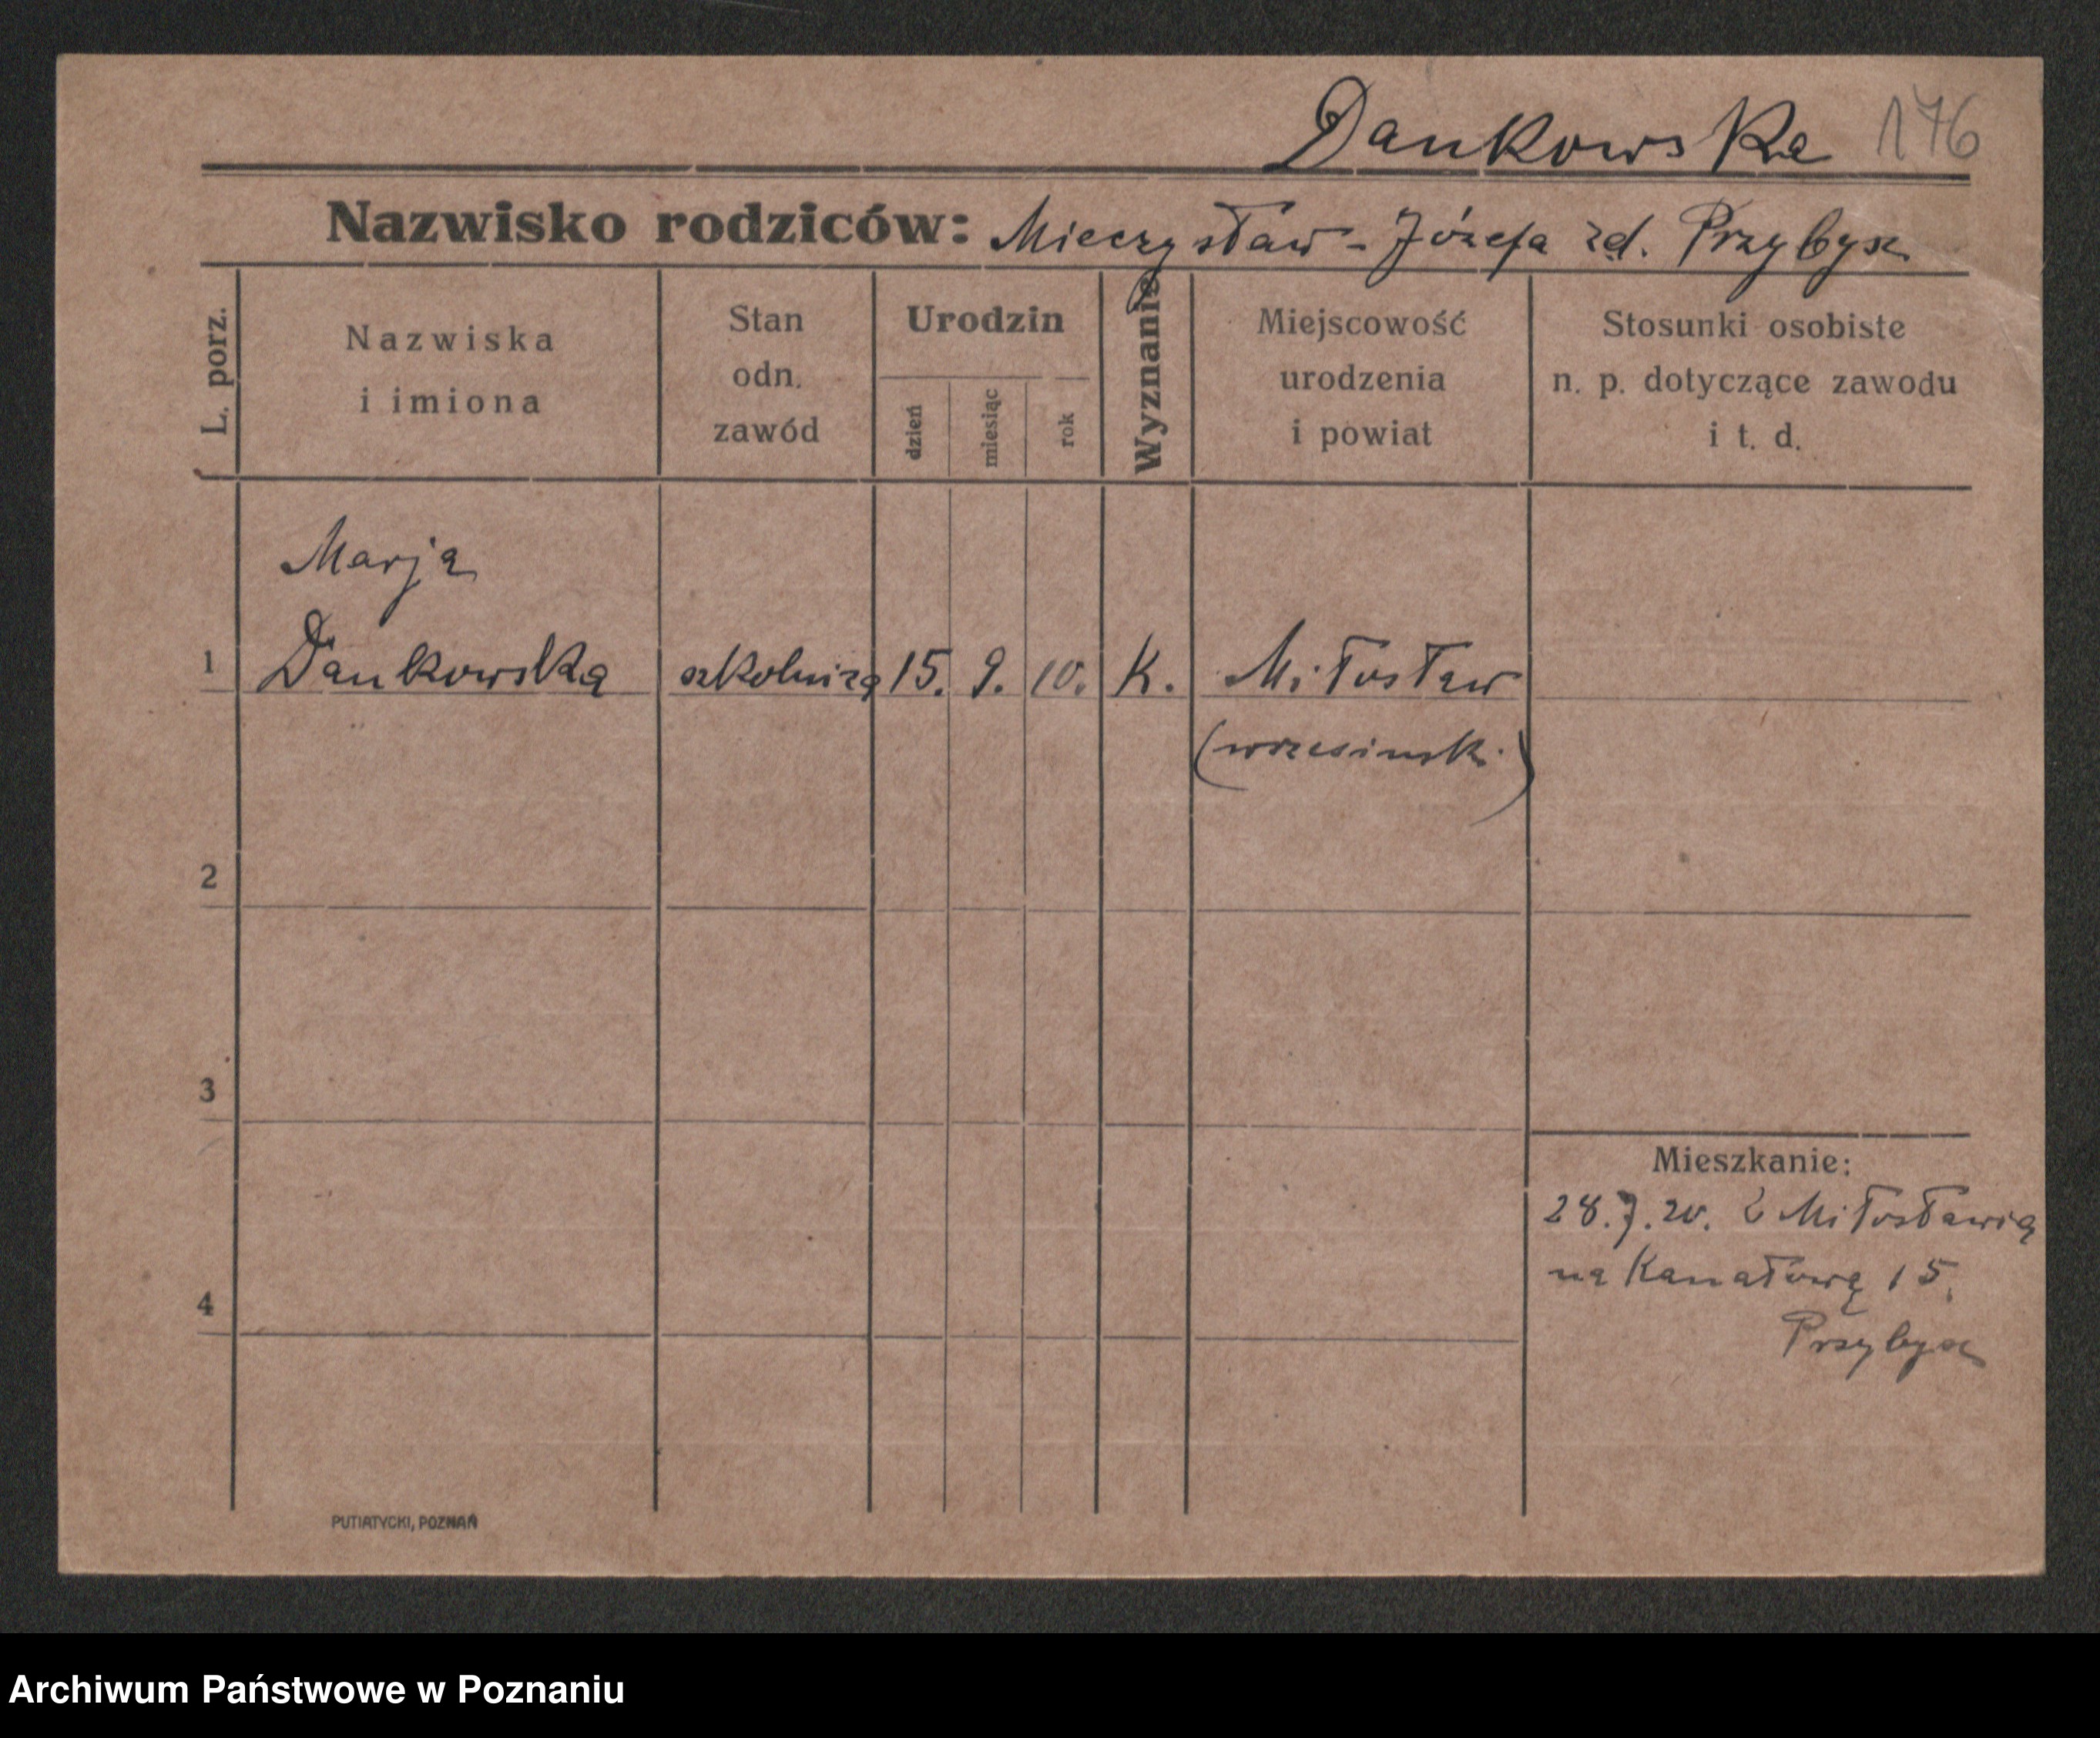 Dankowska 176
Nazwisko rodziców: Mieczysław - Józefa zd. Przybysz
L. porz.
Nazwiska
i imiona
Stan
odn.
zawód
Urodzin
dzień
miesiąc
rok
Wyznanie
Miejscowość
urodzenia
i powiat
Stosunki osobiste
n. p. dotyczące zawodu
i t. d.
Marja
1 Dankowska 15. 9. 10. K. Miłosław
(wrzesinsk.)
2
3
4
Mieszkanie:
28.7.20. z Miłosławia
na Kanałową 15.
Przybysz
PUTIATYCKI, POZNAŃ
Archiwum Państwowe w Poznaniu